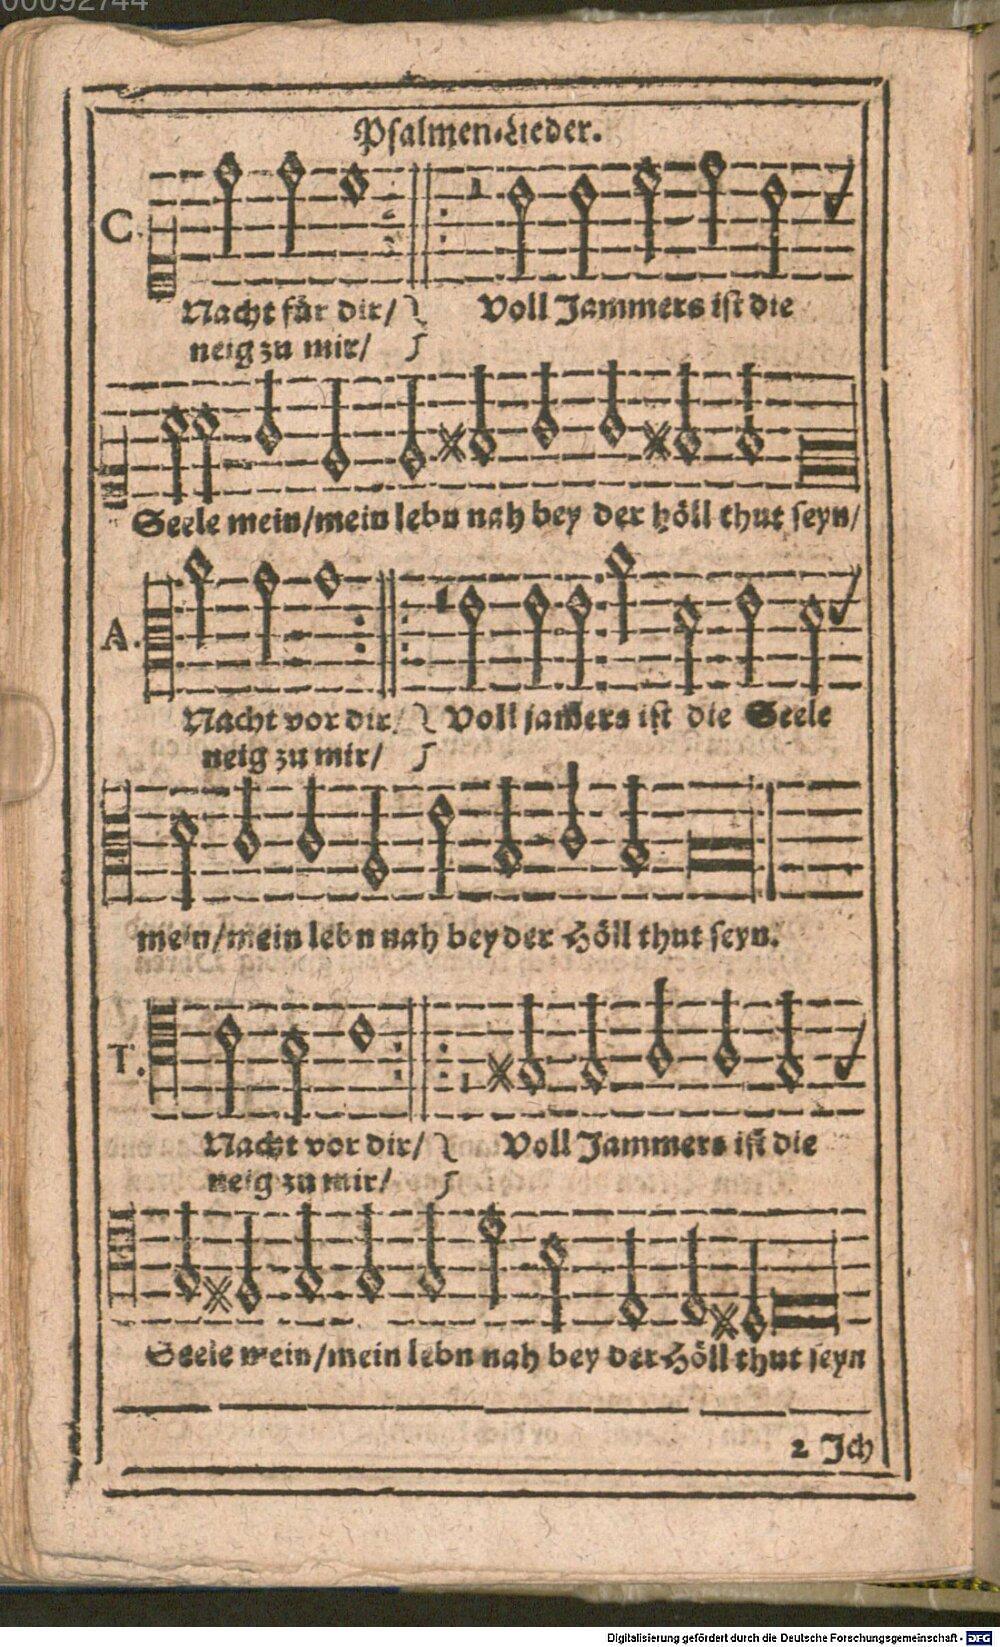 00092744
Psalmen-Lieder.
C.
Nacht für dir/ Voll Jammers ist die
neig zu mir/
Seele mein/mein lebn nah bey der höll thut seyn/
A.
Nacht vor dir/ Voll jam̃ers ist die Seele
neig zu mir/
mein/mein lebn nah bey der Höll thut seyn.
T.
Nacht vor dir/ Voll Jammers ist die
neig zu mir/
Seele mein/mein lebn nah bey der Höll thut seyn
2 Jch
Digitalisierung gefördert durch die Deutsche Forschungsgemeinschaft - DFG